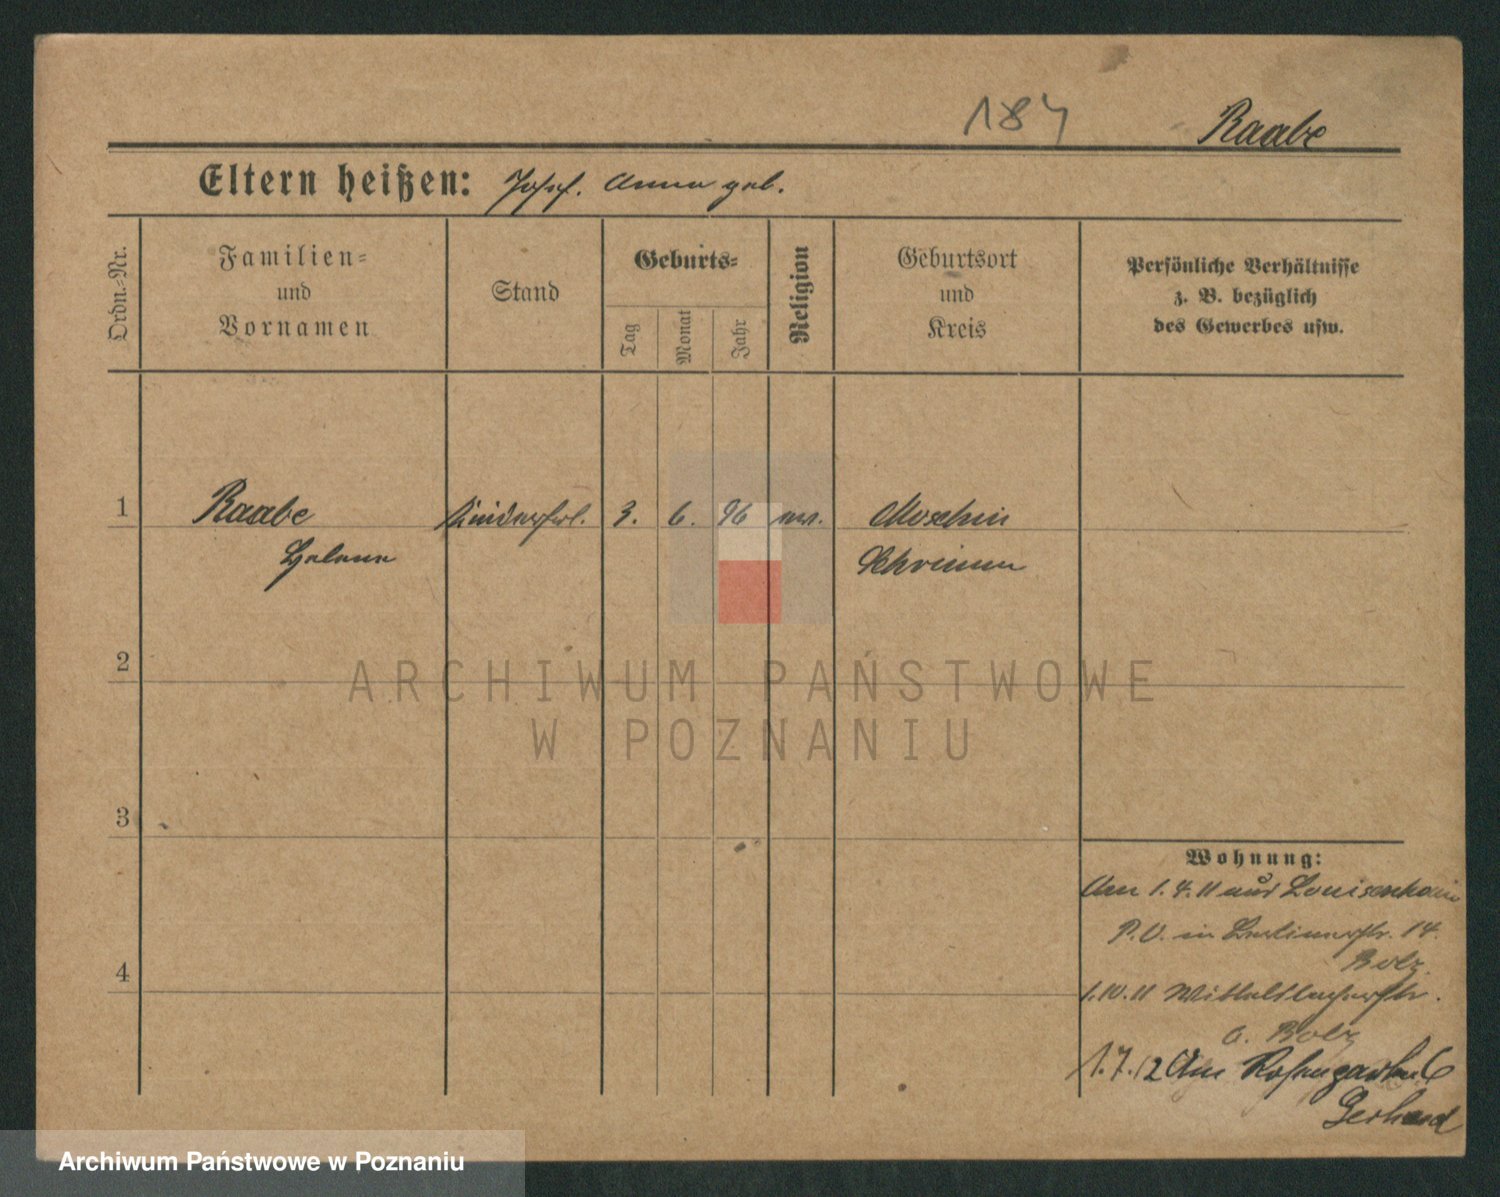 187
Raabe
Eltern heißen: Josef. Anna geb.
Ordn.-Nr.
Familien-
und
Vornamen
Stand
Geburts-
Tag
Monat
Jahr
Religion
Geburtsort
und
Kreis
Persönliche Verhältnisse
z. B. bezüglich
des Gewerbes usw.
1 Raabe 3. 6. 96 Moschin
Helene Schrimm
2
3
4
Wohnung:
Am 1.4.11 aus Louisenhain
P.O. in Berlinerstr. 14.
Bolz.
1.10.11 Wittelsbacherstr.
6. Bolz
1.7.12 Am Rosengarten 6
Gerhard
ARCHIWUM PAŃSTWOWE
W POZNANIU
Archiwum Państwowe w Poznaniu